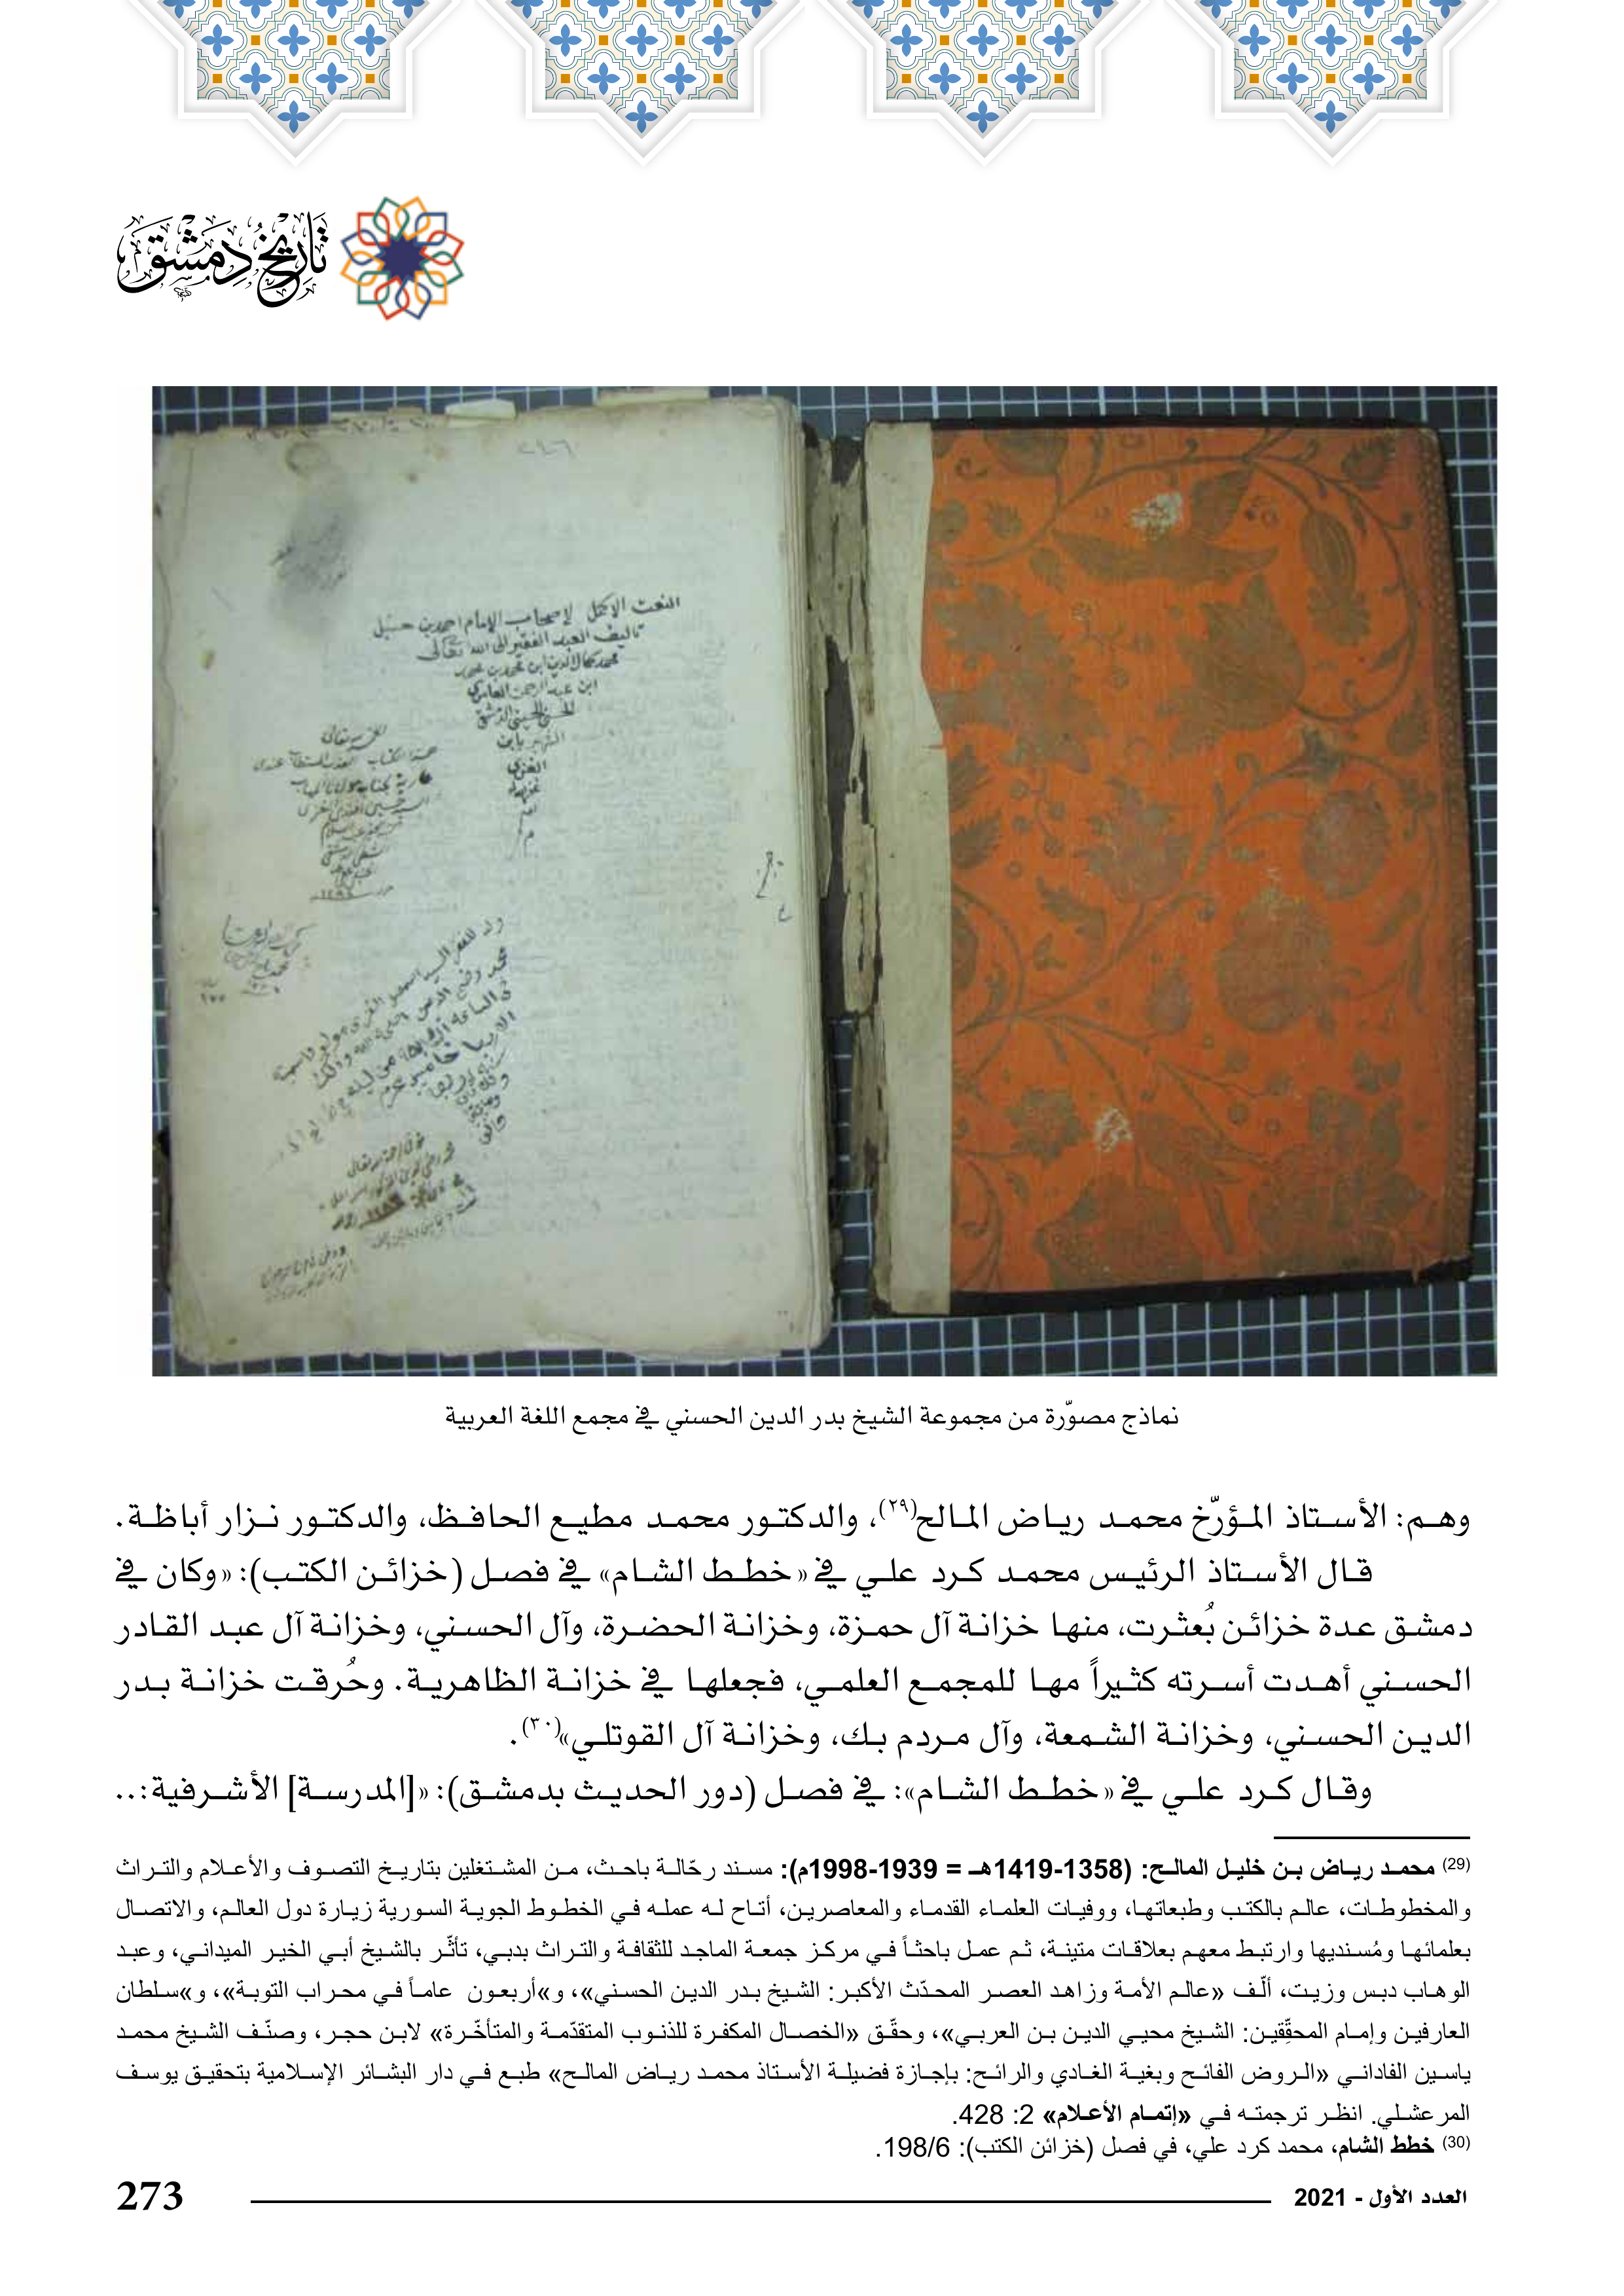 تاريخ دمشق
النعت الاكمل لاصحاب الإمام احمد بن حنبل
تاليف العبد الفقير الى الله تعالى
محمد كمال الدين ابن محمد بن محمد
ابن عبد الرحمن العامري
الحسني الحسيني الدمشقي
الشهير بابن
الغزي
نماذج مصوّرة من مجموعة الشيخ بدر الدين الحسني في مجمع اللغة العربية
وهم: الأستاذ المؤرّخ محمد رياض المالح(٢٩)، والدكتور محمد مطيع الحافظ، والدكتور نزار أباظة.
قال الأستاذ الرئيس محمد كرد علي في «خطط الشام» في فصل (خزائن الكتب): «وكان في
دمشق عدة خزائن بُعثرت، منها خزانة آل حمزة، وخزانة الحضرة، وآل الحسني، وخزانة آل عبد القادر
الحسني أهدت أسرته كثيراً مها للمجمع العلمي، فجعلها في خزانة الظاهرية. وحُرقت خزانة بدر
الدين الحسني، وخزانة الشمعة، وآل مردم بك، وخزانة آل القوتلي»(٣٠).
وقال كرد علي في «خطط الشام»: في فصل (دور الحديث بدمشق): «[المدرسة] الأشرفية:..
(29) محمد رياض بن خليل المالح: (1358-1419هـ = 1939-1998م): مسند رحّالة باحث، من المشتغلين بتاريخ التصوف والأعلام والتراث
والمخطوطات، عالم بالكتب وطبعاتها، ووفيات العلماء القدماء والمعاصرين، أتاح له عمله في الخطوط الجوية السورية زيارة دول العالم، والاتصال
بعلمائها ومُسنديها وارتبط معهم بعلاقات متينة، ثم عمل باحثاً في مركز جمعة الماجد للثقافة والتراث بدبي، تأثّر بالشيخ أبي الخير الميداني، وعبد
الوهاب دبس وزيت، ألّف «عالم الأمة وزاهد العصر المحدّث الأكبر: الشيخ بدر الدين الحسني»، و»أربعون عاماً في محراب التوبة»، و»سلطان
العارفين وإمام المحقّقين: الشيخ محيي الدين بن العربي»، وحقّق «الخصال المكفرة للذنوب المتقدّمة والمتأخّرة» لابن حجر، وصنّف الشيخ محمد
ياسين الفاداني «الروض الفائح وبغية الغادي والرائح: بإجازة فضيلة الأستاذ محمد رياض المالح» طبع في دار البشائر الإسلامية بتحقيق يوسف
المرعشلي. انظر ترجمته في «إتمام الأعلام» 2: 428.
(30) خطط الشام، محمد كرد علي، في فصل (خزائن الكتب): 198/6.
العدد الأول - 2021
273